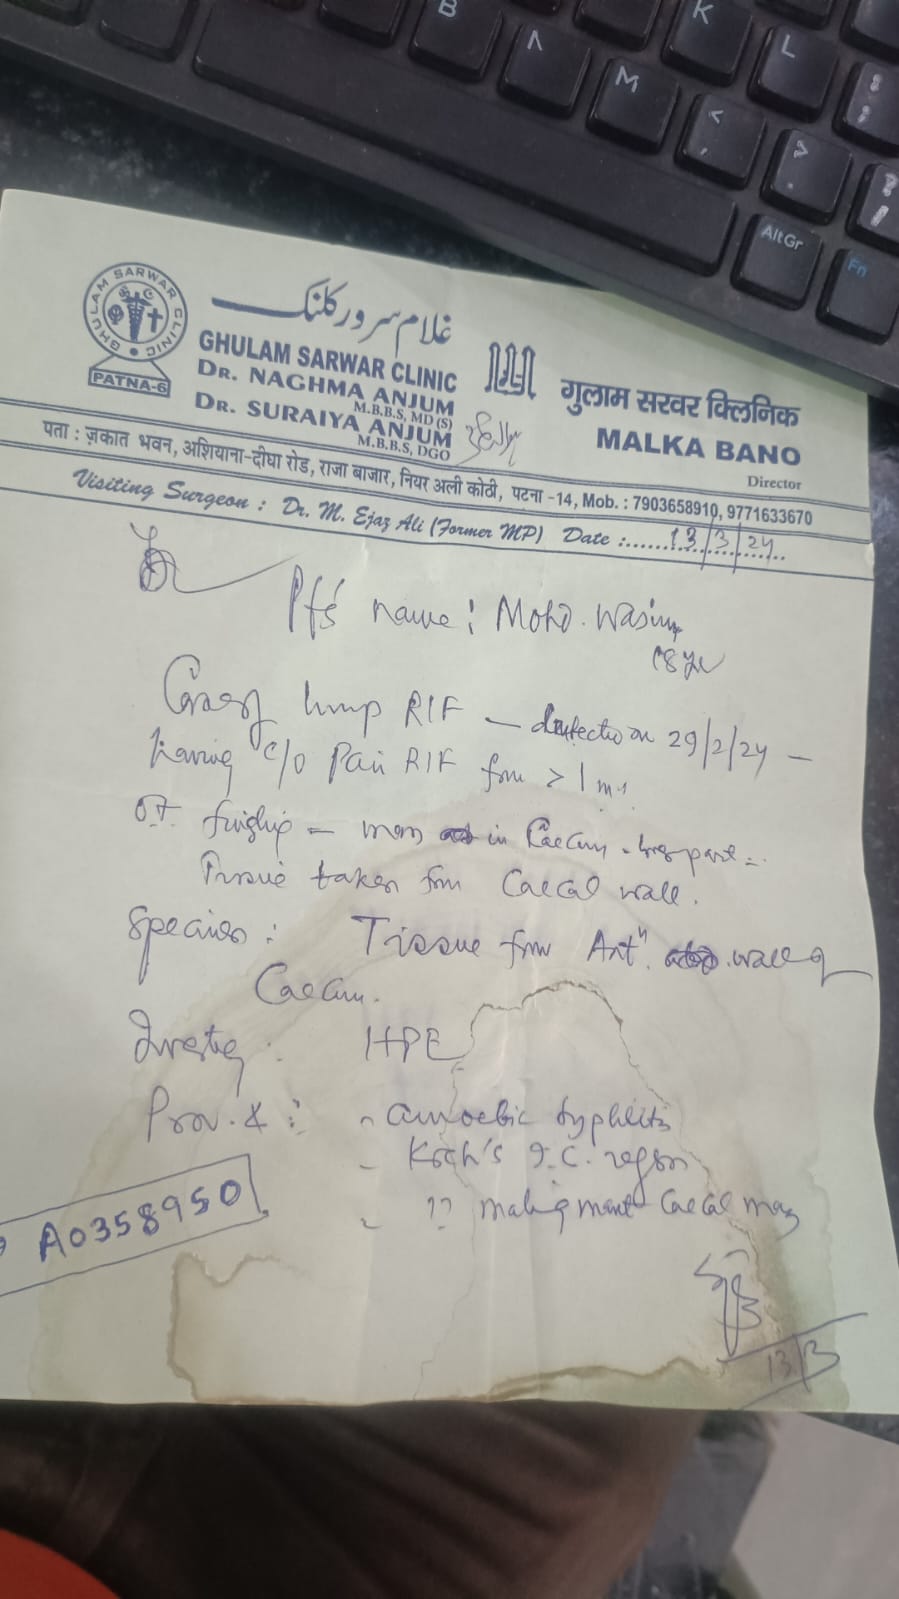 B
N
M
K
L
<
,
>
.
?
/
AltGr
Fn
GHULAM SARWAR CLINIC
PATNA-6
غلام سرور کلنک
GHULAM SARWAR CLINIC
DR. NAGHMA ANJUM
M.B.B.S, MD (S)
DR. SURAIYA ANJUM
M.B.B.S, DGO
गुलाम सरवर क्लिनिक
MALKA BANO
Director
पता : ज़कात भवन, अशियाना-दीघा रोड, राजा बाजार, नियर अली कोठी, पटना -14, Mob. : 7903658910, 9771633670
Visiting Surgeon : Dr. M. Ejaz Ali (Former MP) Date :......13/3/24
Pt's name : Mohd. Wasim
Case of lump RIF — 29/2/24 —
having c/o Pain RIF from > 1 m
O.T. — mass in Caecum
Tissue taken from Caecal wall.
Tissue from Ant. wall of
Caecum.
HPE
Prov. : - amoebic typhlitis
- Koch's I.C. region
- ?? malignant Caecal mass
A0358950
13/3